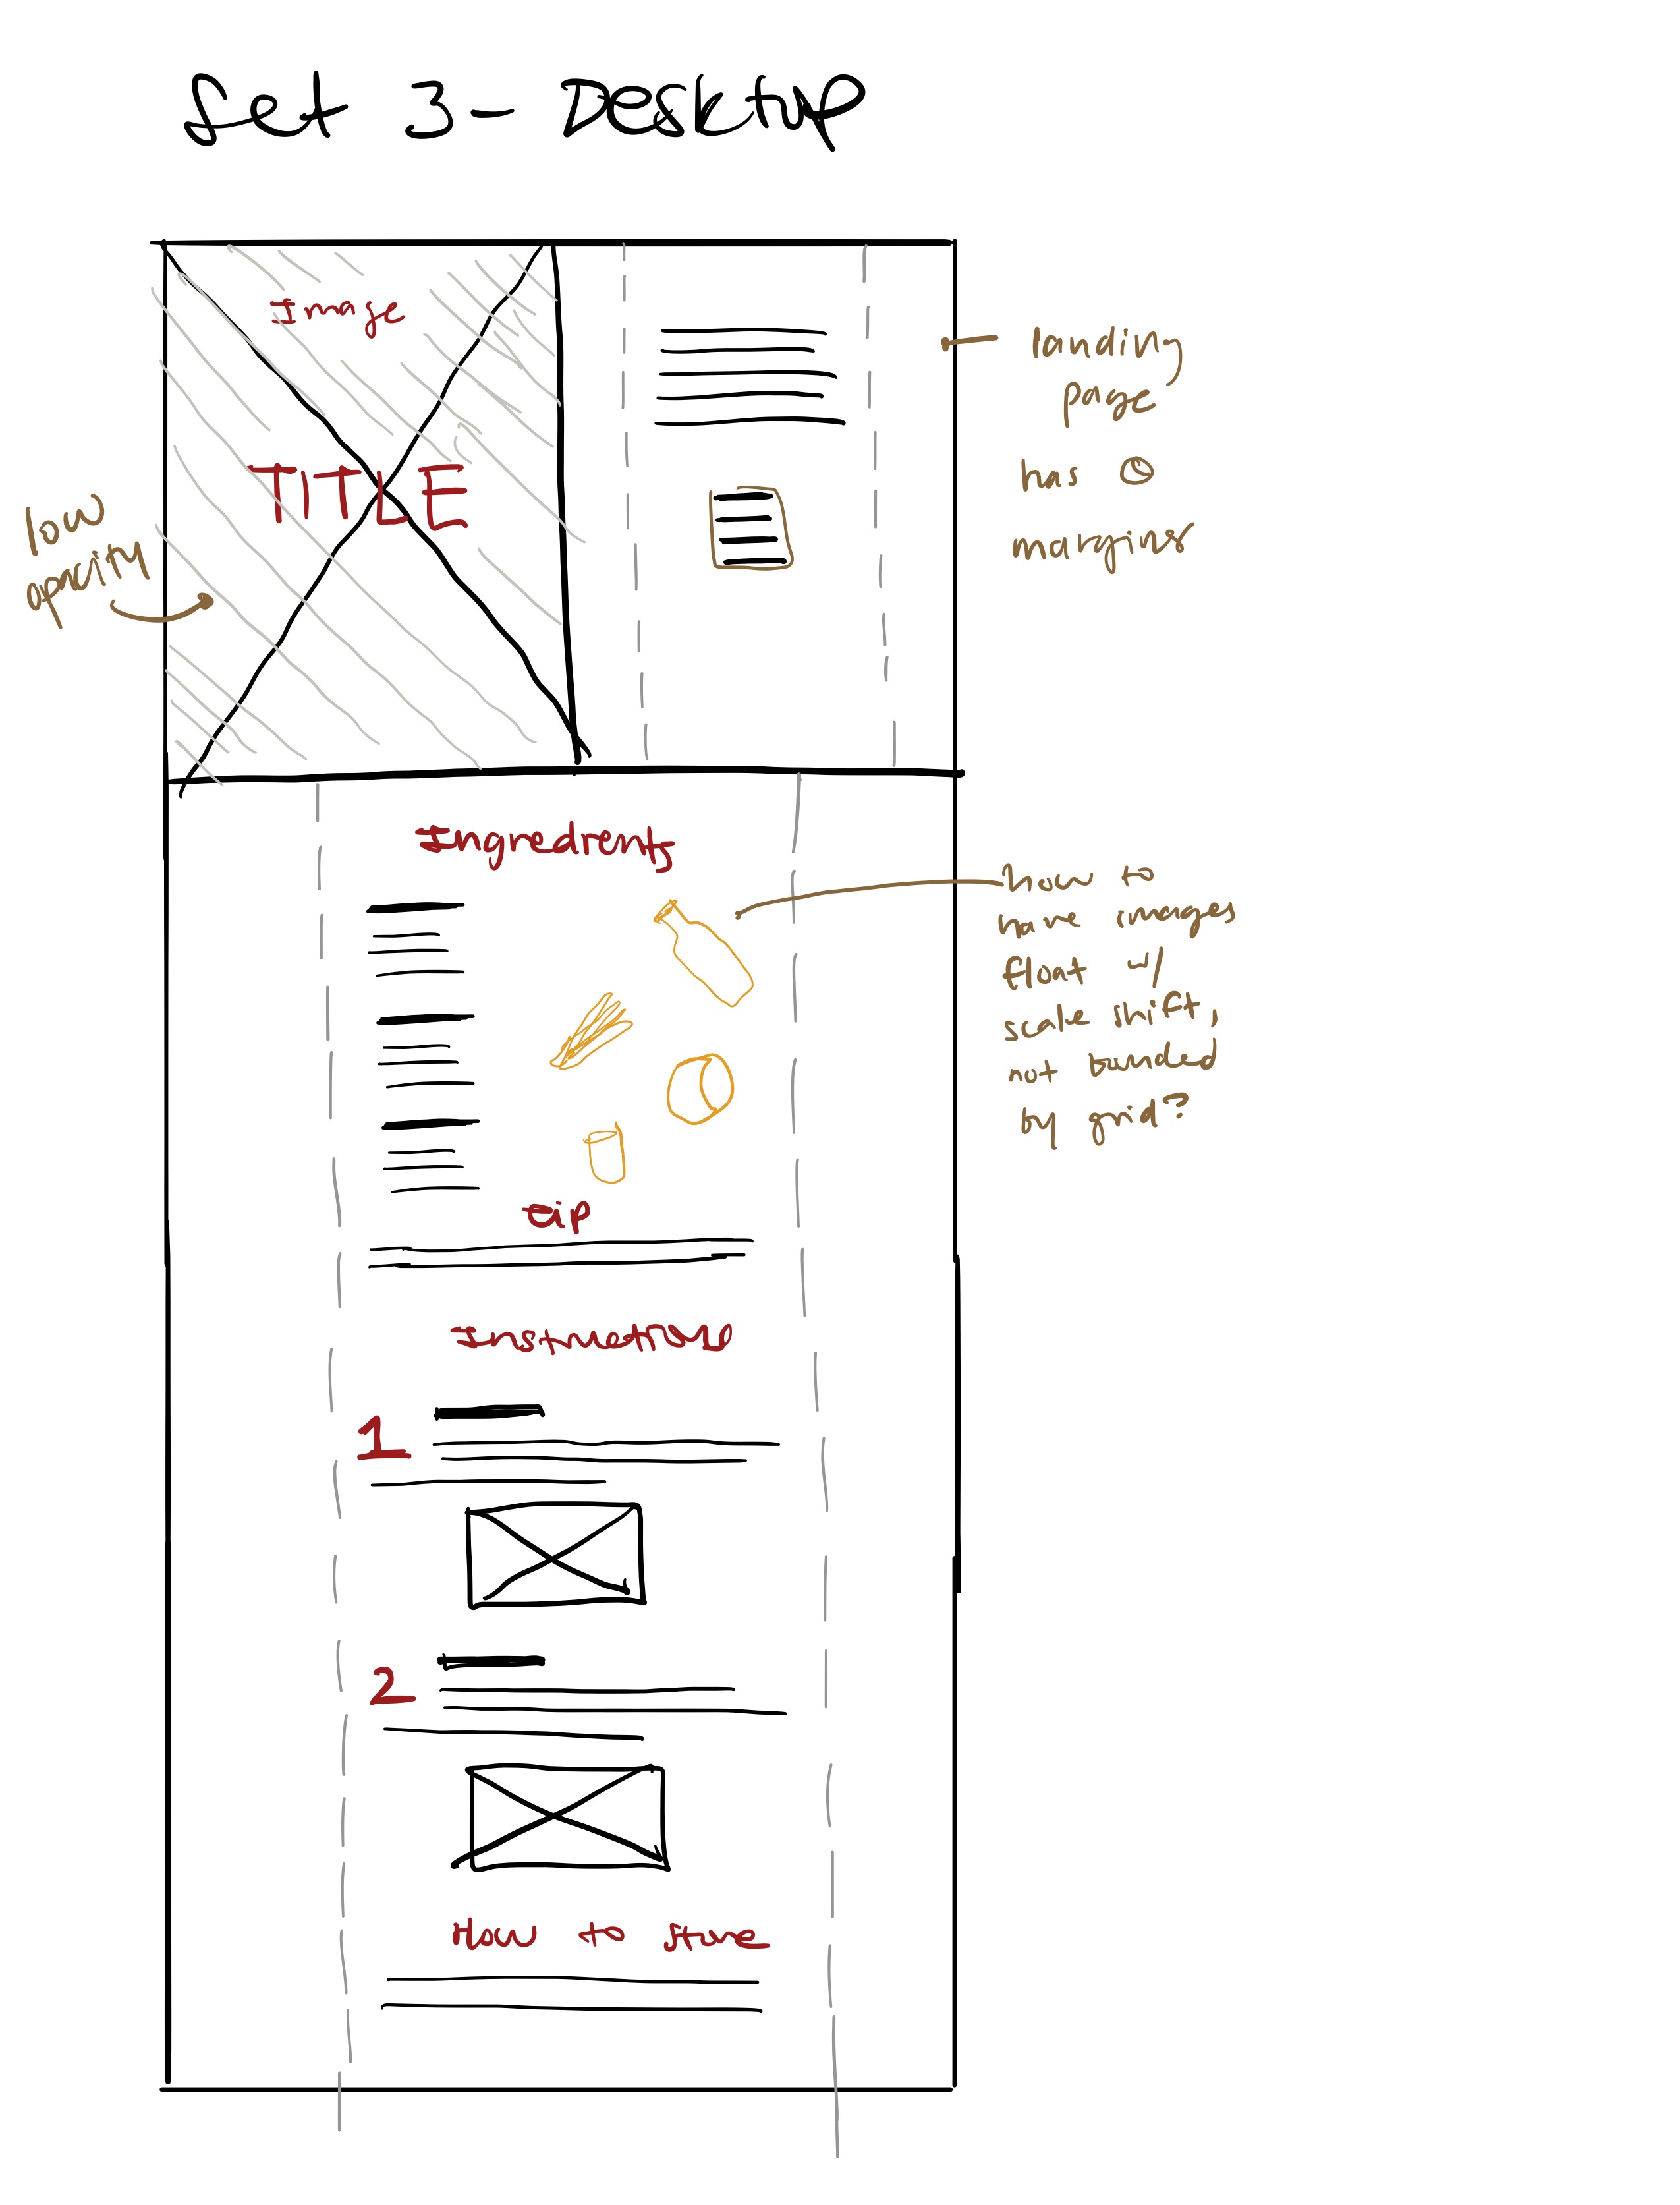 Set 3 - Desktop
Image
TITLE
low
opacity
landing
page
has 0
margins
Ingredients
how to
have images
float w/
scale shift,
not bounded
by grid?
tip
Instructions
1
2
How to store